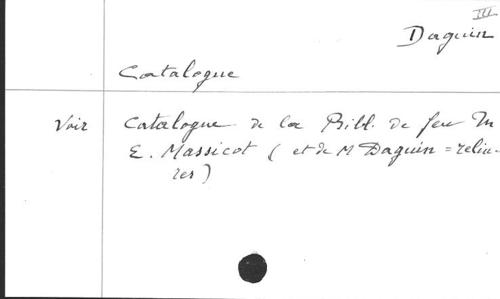 III
Daguin
Catalogue
Voir Catalogue de la Bibl. de feu M
E. Massicot ( et de M Daguin = reliu-
res )